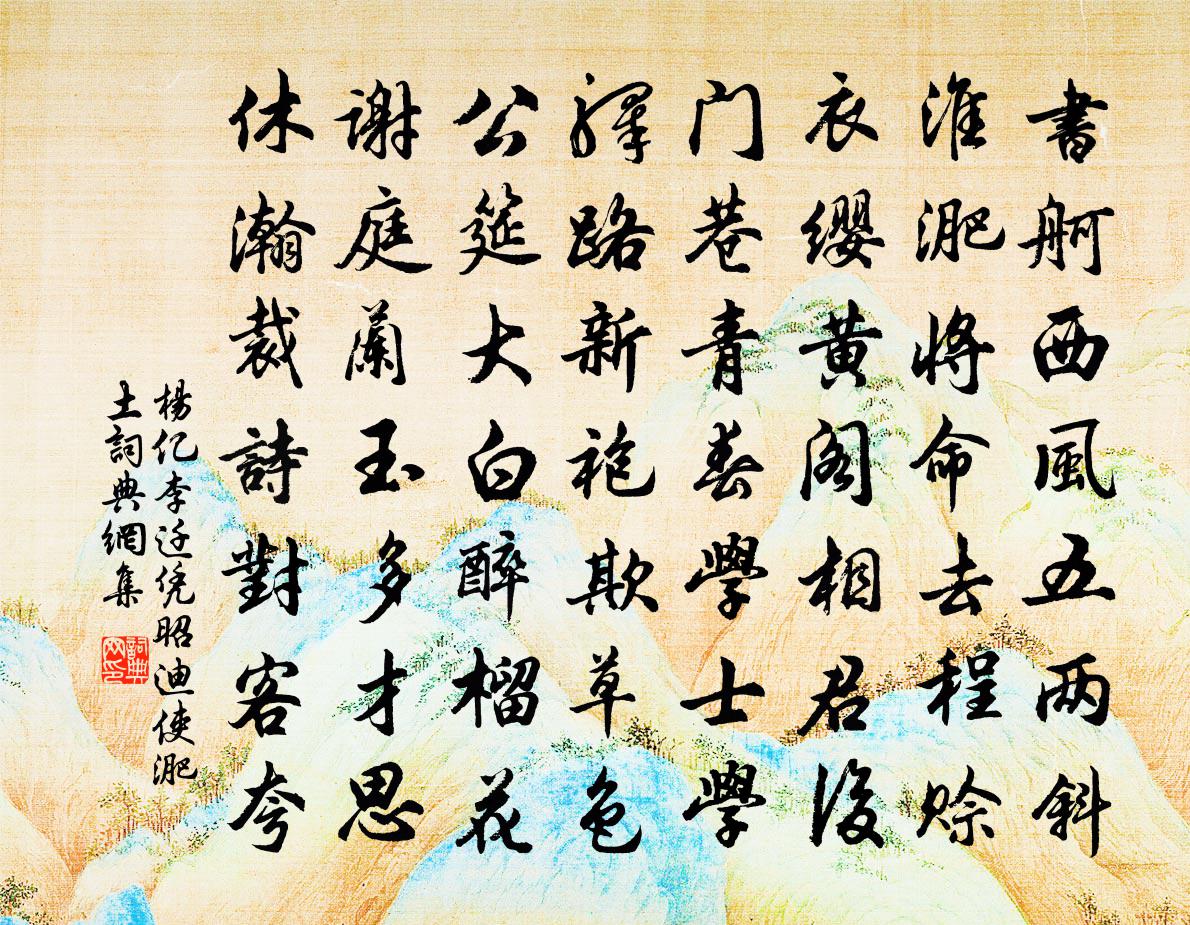 書舸西風五两斜
淮淝將命去程賒
衣缨黄阁相君後
门巷青春學士學
驛路新袍欺草色
公筵大白醉榴花
谢庭蘭玉多才思
休瀚裁詩對客夸
楊亿李迁凭昭迪使淝
土詞典網集
詞典网印